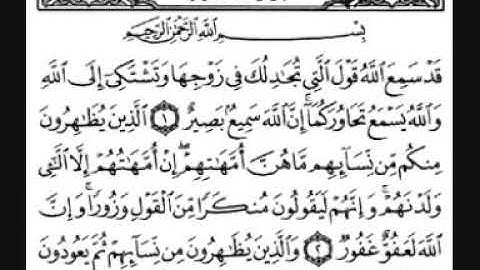 بِسْمِ اللَّهِ الرَّحْمَٰنِ الرَّحِيمِ
قَدْ سَمِعَ اللَّهُ قَوْلَ الَّتِي تُجَادِلُكَ فِي زَوْجِهَا وَتَشْتَكِي إِلَى اللَّهِ
وَاللَّهُ يَسْمَعُ تَحَاوُرَكُمَا إِنَّ اللَّهَ سَمِيعٌ بَصِيرٌ ١ الَّذِينَ يُظَاهِرُونَ
مِنكُم مِّن نِّسَائِهِم مَّا هُنَّ أُمَّهَاتِهِمْ إِنْ أُمَّهَاتُهُمْ إِلَّا اللَّائِي
وَلَدْنَهُمْ وَإِنَّهُمْ لَيَقُولُونَ مُنكَرًا مِّنَ الْقَوْلِ وَزُورًا وَإِنَّ
اللَّهَ لَعَفُوٌّ غَفُورٌ ٢ وَالَّذِينَ يُظَاهِرُونَ مِن نِّسَائِهِمْ ثُمَّ يَعُودُونَ